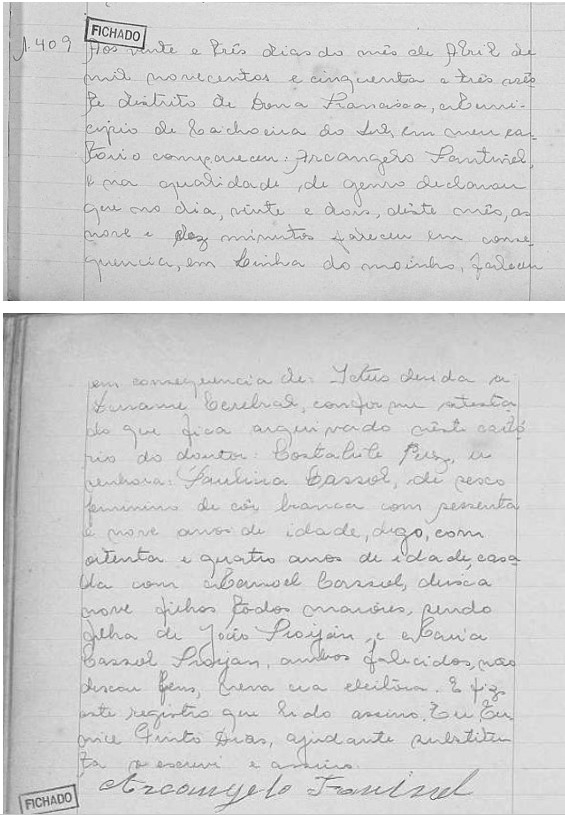 FICHADO
N. 409 Aos vinte e três dias do mês de Abril de
mil novecentos e cinquenta e três nês
te distrito de Dona Francisca, Muni-
cipio de Cachoeira do Sul, em meu car-
tório compareceu: Arcangelo Fantinel,
e na qualidade, de genro declarou
que no dia, vinte e dois, dêste mês, as
nove e dez minutos faleceu em conse-
quencia, em Linha do moinho, faleceu
em consequencia de: Ictus devida a
Derrame Cerebral, conforme atesta
do que fica arquivado nêste cartó
rio do doutor: a
senhora: Paulina Cassol, de sexo
feminino de côr branca com sessenta
e nove anos de idade, digo, com
oitenta e quatro anos de idade, casa
da com Manoel Cassol, deixa
nove filhos todos maiores, sendo
filha de João Troijan, e Maria
Cassol Troijan, ambos falecidos, não
deixou bens, era eleitôra. E fiz
este registro que lido assino. Eu Eu
nice Dias, ajudante substitu
ta o escrevi e assino.
Arcangelo Fantinel
FICHADO